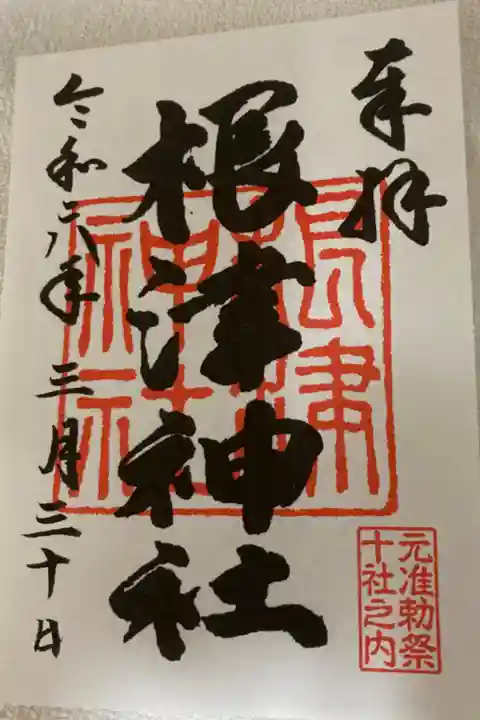 奉拝
元准勅祭
十社之内
根津神社
根津
神社
令和六年三月三十日